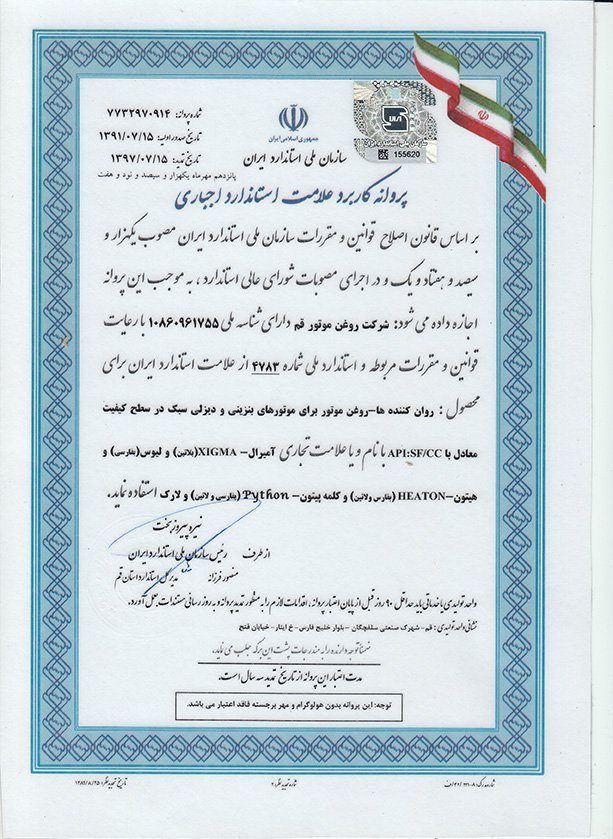 جمهوری اسلامی ایران
سازمان ملی استاندارد ایران
155620
شماره پروانه: ۷۷۳۲۹۷۰۹۱۴
تاریخ صدور اولیه: ۱۳۹۱/۰۷/۱۵
تاریخ تمدید: ۱۳۹۷/۰۷/۱۵
پانزدهم مهرماه یکهزار و سیصد و نود و هفت
پروانه کاربرد علامت استاندارد اجباری
بر اساس قانون اصلاح قوانین و مقررات سازمان ملی استاندارد ایران مصوب یکهزار و
سیصد و هفتاد و یک و در اجرای مصوبات شورای عالی استاندارد، به موجب این پروانه
اجازه داده می شود: شرکت روغن موتور قم دارای شناسه ملی ۱۰۸۶۰۹۶۱۷۵۵ با رعایت
قوانین و مقررات مربوطه و استاندارد ملی شماره ۴۷۸۳ از علامت استاندارد ایران برای
محصول: روان کننده ها-روغن موتور برای موتورهای بنزینی و دیزلی سبک در سطح کیفیت
معادل با API:SF/CC با نام و یا علامت تجاری آمیرال- XIGMA(بلاتین) و لیوس(بفارسی) و
هیتون-HEATON (بفارس ولاتین) و کلمه پیتون- Python (بفارسی و لاتین) و لارک استفاده نماید.
نیره پیروزبخت
رئیس سازمان ملی استاندارد ایران
از طرف
منصور فرزانه
مدیر کل استاندارد استان قم
واحد تولیدی یا خدماتی باید حداقل ۹۰ روز قبل از پایان اعتبار پروانه، اقدامات لازم را به منظور تمدید پروانه و به روز رسانی مستندات بعمل آورد.
نشانی واحد تولیدی: قم-شهرک صنعتی سلفچگان -بلوار خلیج فارس-خ ایثار-خیابان فتح
ضمنا توجه دارنده را به مندرجات پشت این برگه جلب می نماید.
مدت اعتبار این پروانه از تاریخ تمدید سه سال است.
توجه: این پروانه بدون هولوگرام و مهر برجسته فاقد اعتبار می باشد.
شماره تجدید نظر: ۲